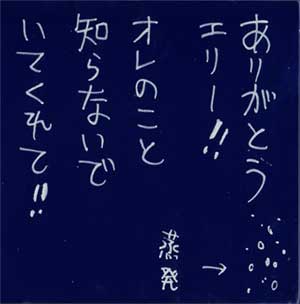 ありがとう
エリー!!
オレのこと
知らないで
いてくれて!!
→
蒸発